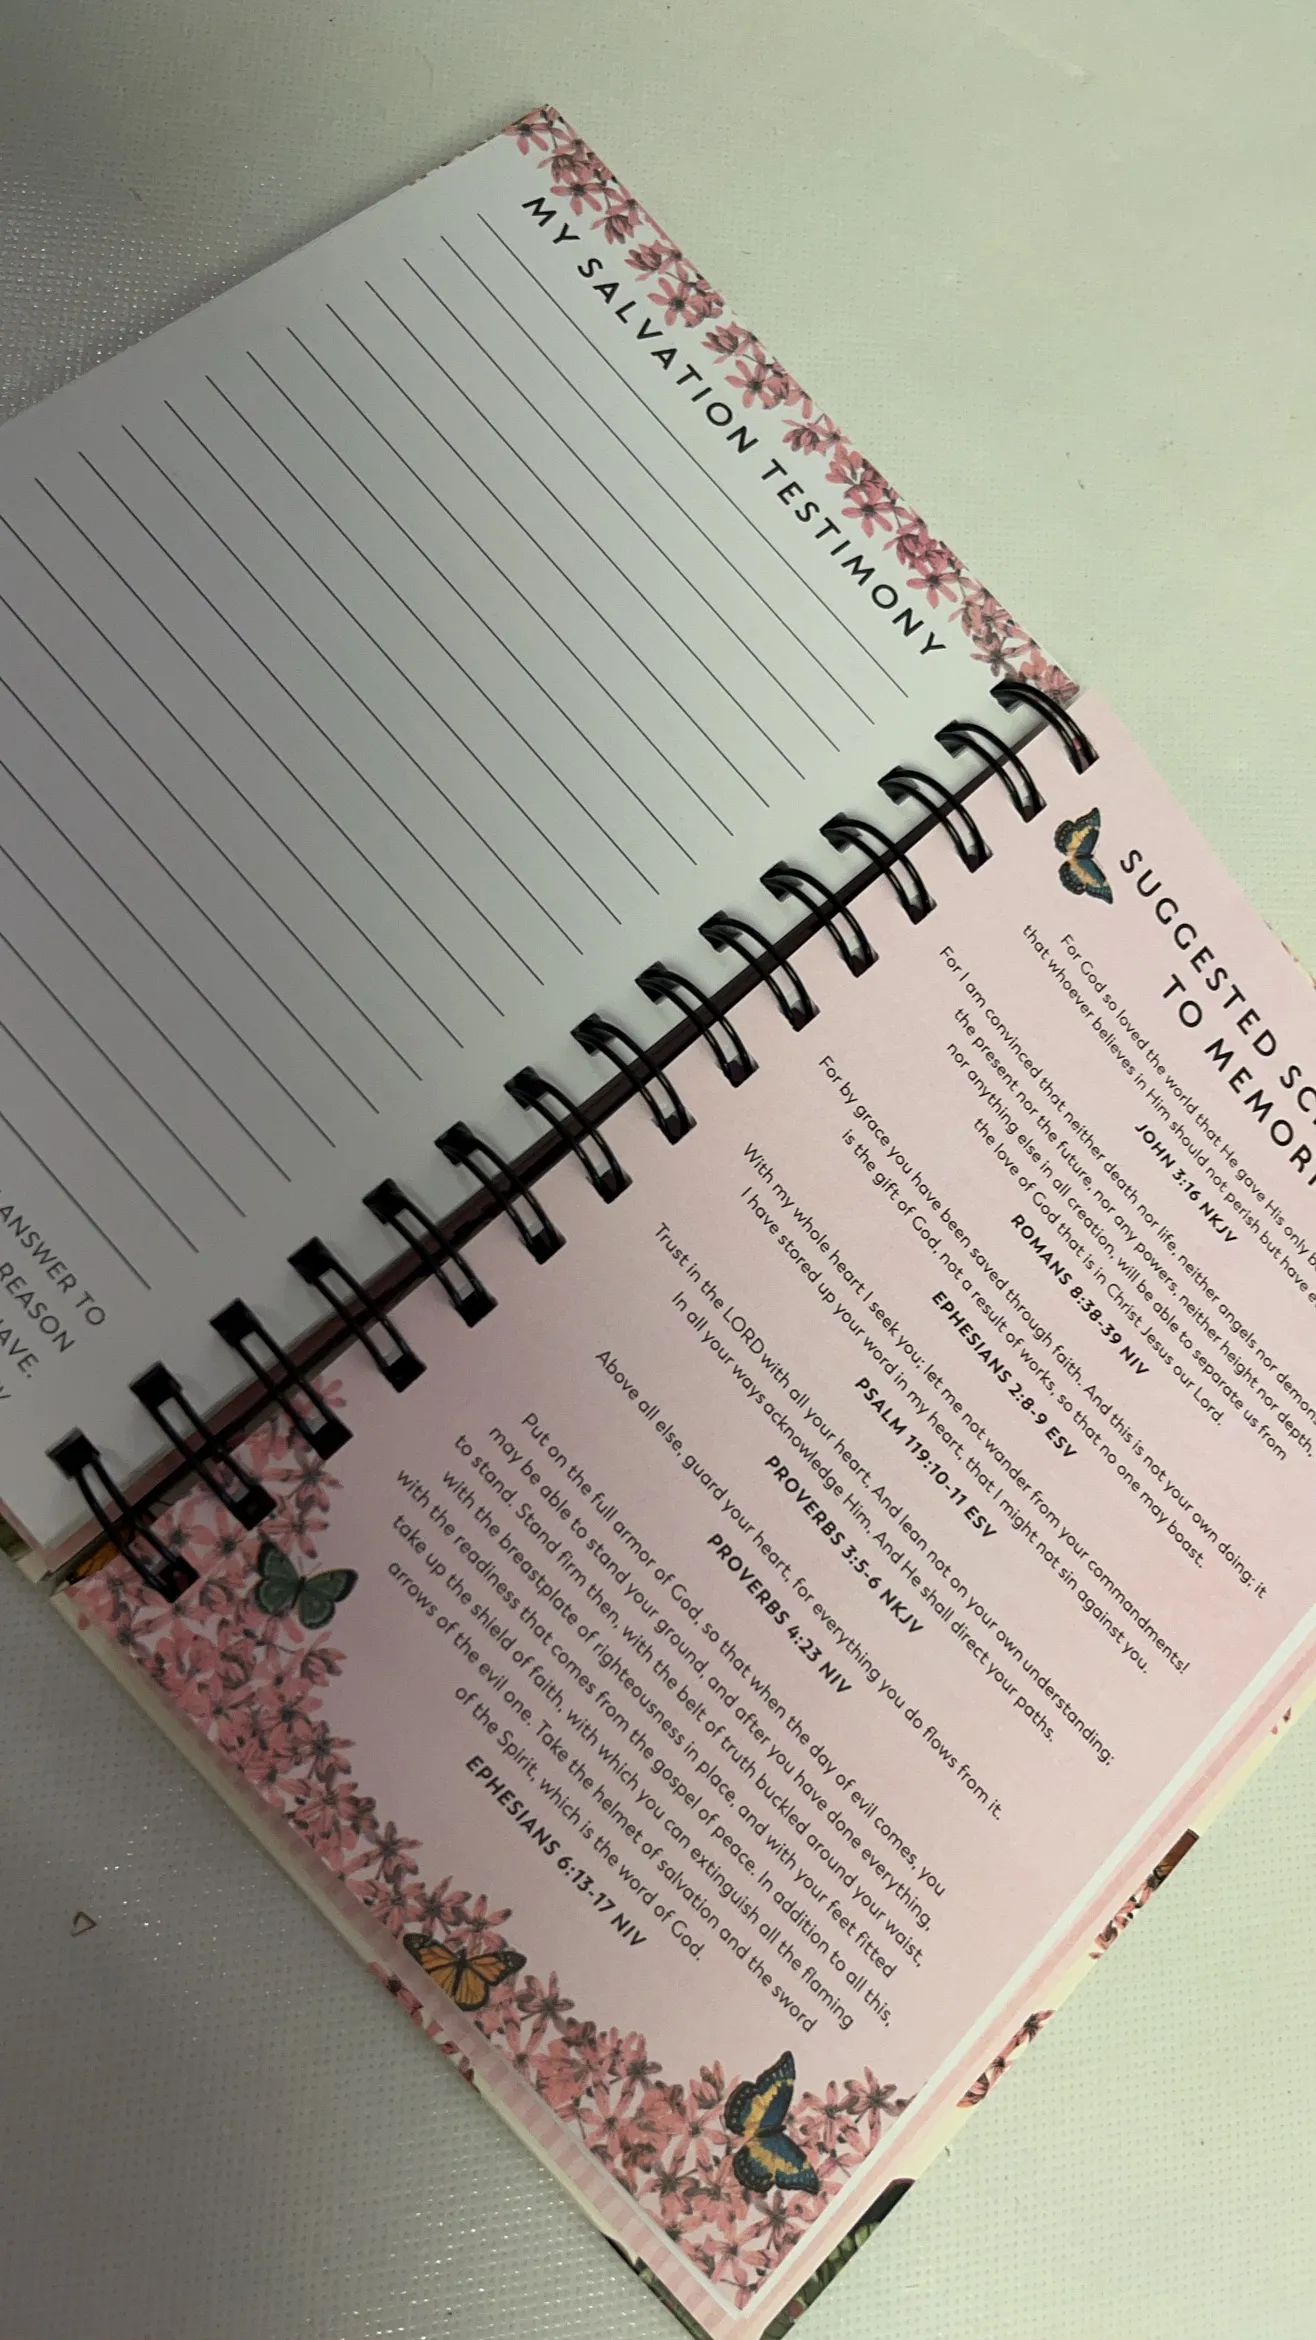 MY SALVATION TESTIMONY
ANSWER TO
REASON
SUGGESTED
TO
For God so loved the world that He gave His only
that whoever believes in Him should not perish but have
JOHN 3:16 NKJV
For I am convinced that neither death nor life, neither angels nor
the present nor the future, nor any powers, neither height nor depth,
nor anything else in all creation, will be able to separate us from
the love of God that is in Christ Jesus our Lord.
ROMANS 8:38-39 NIV
For by grace you have been saved through faith. And this is not your own doing; it
is the gift of God, not a result of works, so that no one may boast.
EPHESIANS 2:8-9 ESV
With my whole heart I seek you; let me not wander from your commandments!
I have stored up your word in my heart, that I might not sin against you.
PSALM 119:10-11 ESV
Trust in the LORD with all your heart, And lean not on your own understanding;
In all your ways acknowledge Him, And He shall direct your paths.
PROVERBS 3:5-6 NKJV
Above all else, guard your heart, for everything you do flows from it.
PROVERBS 4:23 NIV
Put on the full armor of God, so that when the day of evil comes, you
may be able to stand your ground, and after you have done everything,
to stand. Stand firm then, with the belt of truth buckled around your waist,
with the breastplate of righteousness in place, and with your feet fitted
with the readiness that comes from the gospel of peace. In addition to all this,
take up the shield of faith, with which you can extinguish all the flaming
arrows of the evil one. Take the helmet of salvation and the sword
of the Spirit, which is the word of God.
EPHESIANS 6:13-17 NIV